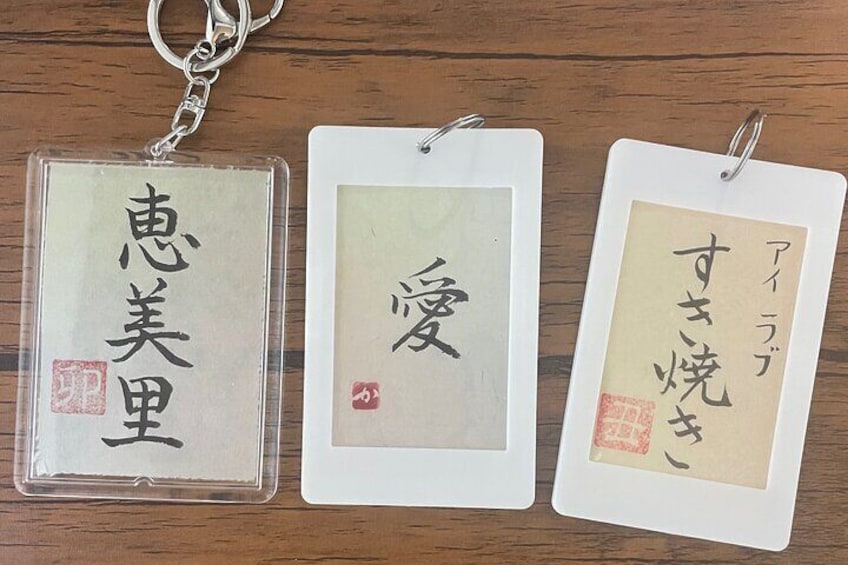 恵美里
卯
愛
か
アイ ラブ
すき焼き
丑